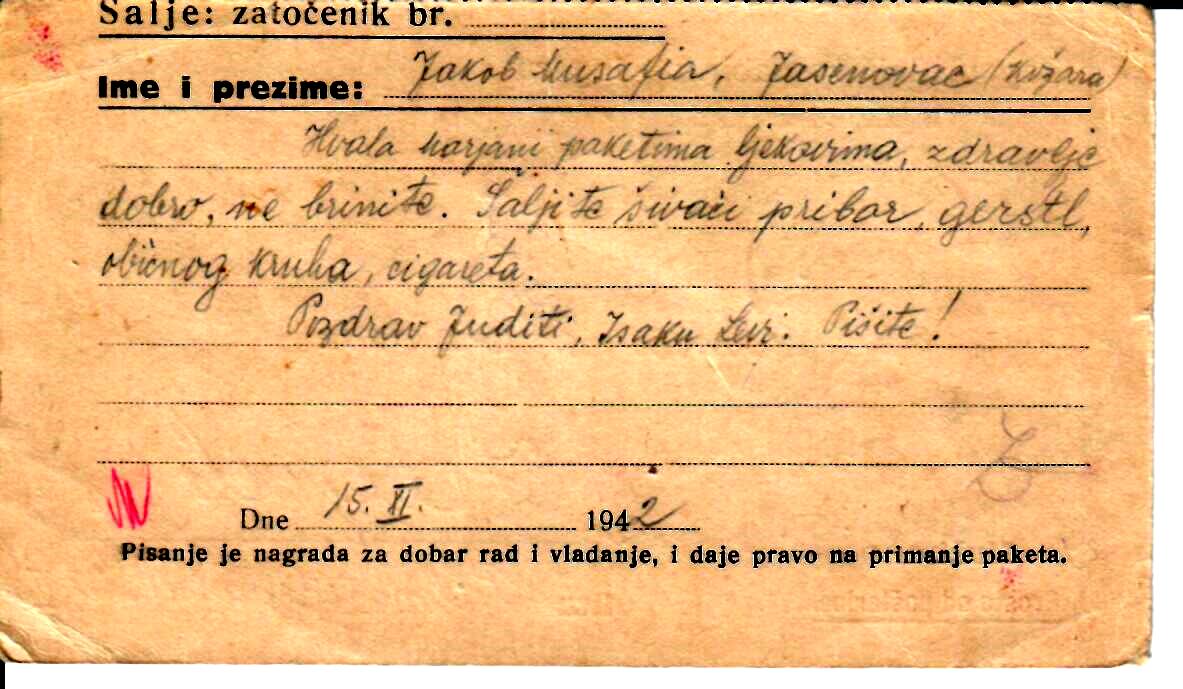 Šalje: zatočenik br.
Ime i prezime: Jakob Musafia, Jasenovac (Kožara)
Hvala Morjani paketima ljekovima, zdravlje
dobro, ne brinite. Šaljite šivaći pribor, gerstl,
običnog kruha, cigareta.
Pozdrav Juditi, Isaku Levi. Pišite!
Dne 15. XI. 1942
Pisanje je nagrada za dobar rad i vladanje, i daje pravo na primanje paketa.